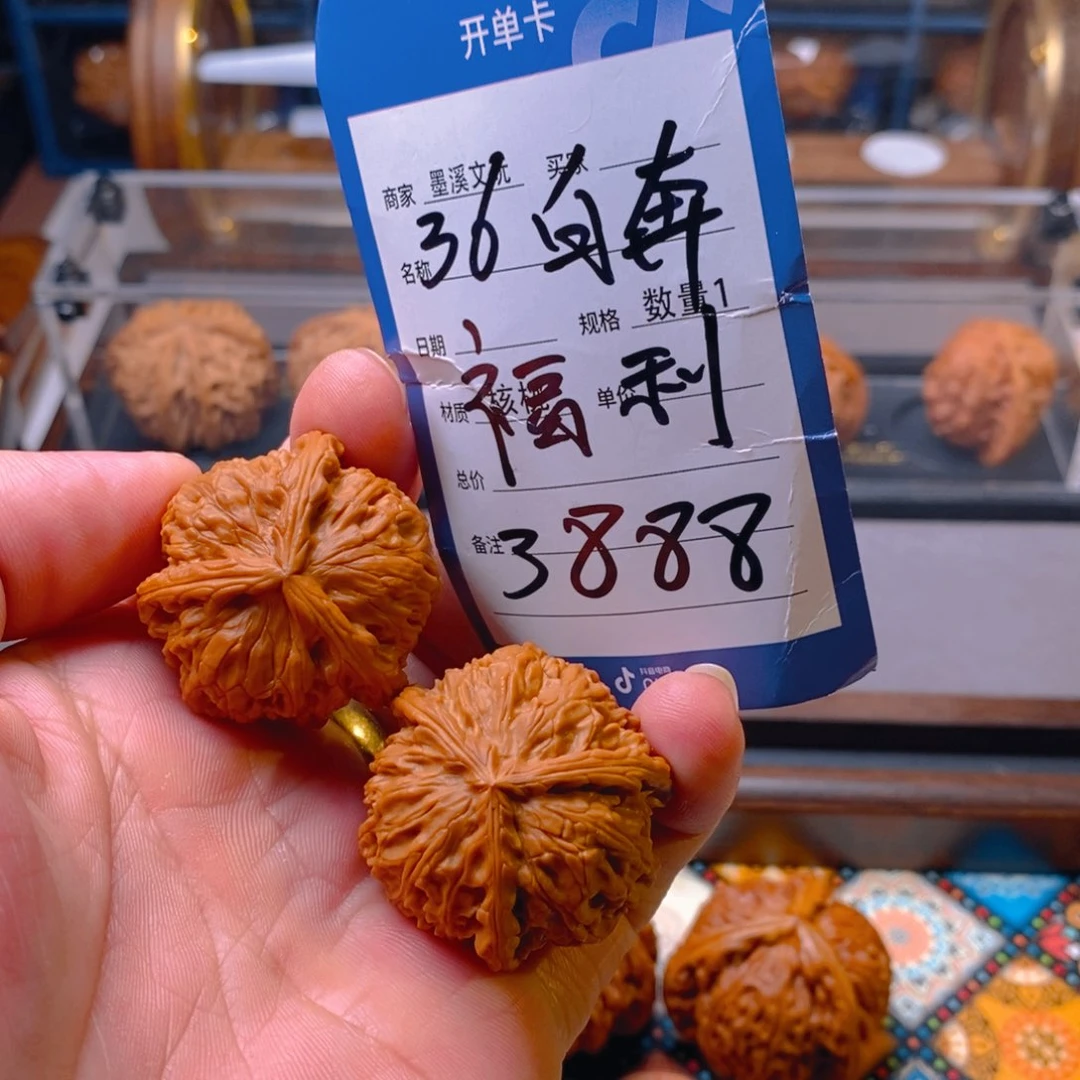 开单卡
商家 墨溪文玩 买家
名称 36白奔
日期 规格 数量1
材质 核桃 单价
福利
总价
备注 3888